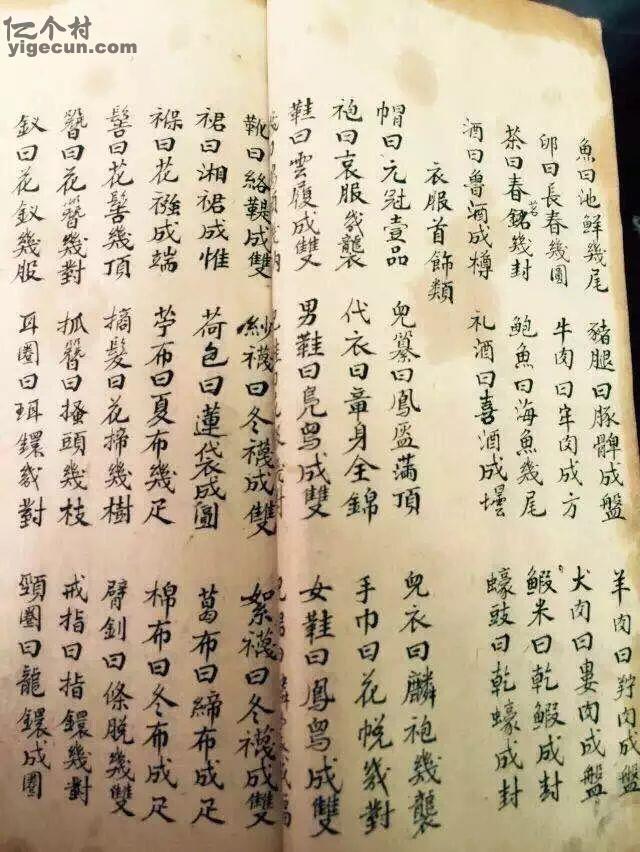 亿个村
yigecun.com
魚曰池鮮幾尾 豬腿曰豚髀成盤 羊肉曰羜肉成盤
卵曰長春幾圓 牛肉曰牢肉成方 犬肉曰婁肉成盤
茶曰春茗幾封 鮑魚曰海魚幾尾 蝦米曰乾蝦成封
酒曰魯酒成樽 礼酒曰喜酒成壜 蠔豉曰乾蠔成封
衣服首飾類
帽曰元冠壹品 兒纂曰鳳盔满頂 兒衣曰麟袍幾襲
袍曰衮服幾襲 代衣曰章身全錦 手巾曰花帨幾對
鞋曰雲履成雙 男鞋曰鳧舃成雙 女鞋曰鳳舃成雙
靴曰絡鞮成雙 紗襪曰冬襪成雙 絮襪曰冬襪成雙
裙曰湘裙成惟 荷包曰蓮袋成圓 葛布曰締布成疋
褓曰花襁成端 苧布曰夏布幾疋 棉布曰冬布成疋
髻曰花髻幾頂 摘髮曰花掃幾樹 臂釧曰條脱幾雙
簪曰花簪幾對 抓簪曰搔頭幾枝 戒指曰指鐶幾對
釵曰花釵幾股 耳圈曰珥鐶幾對 頸圈曰龍鐶成圈